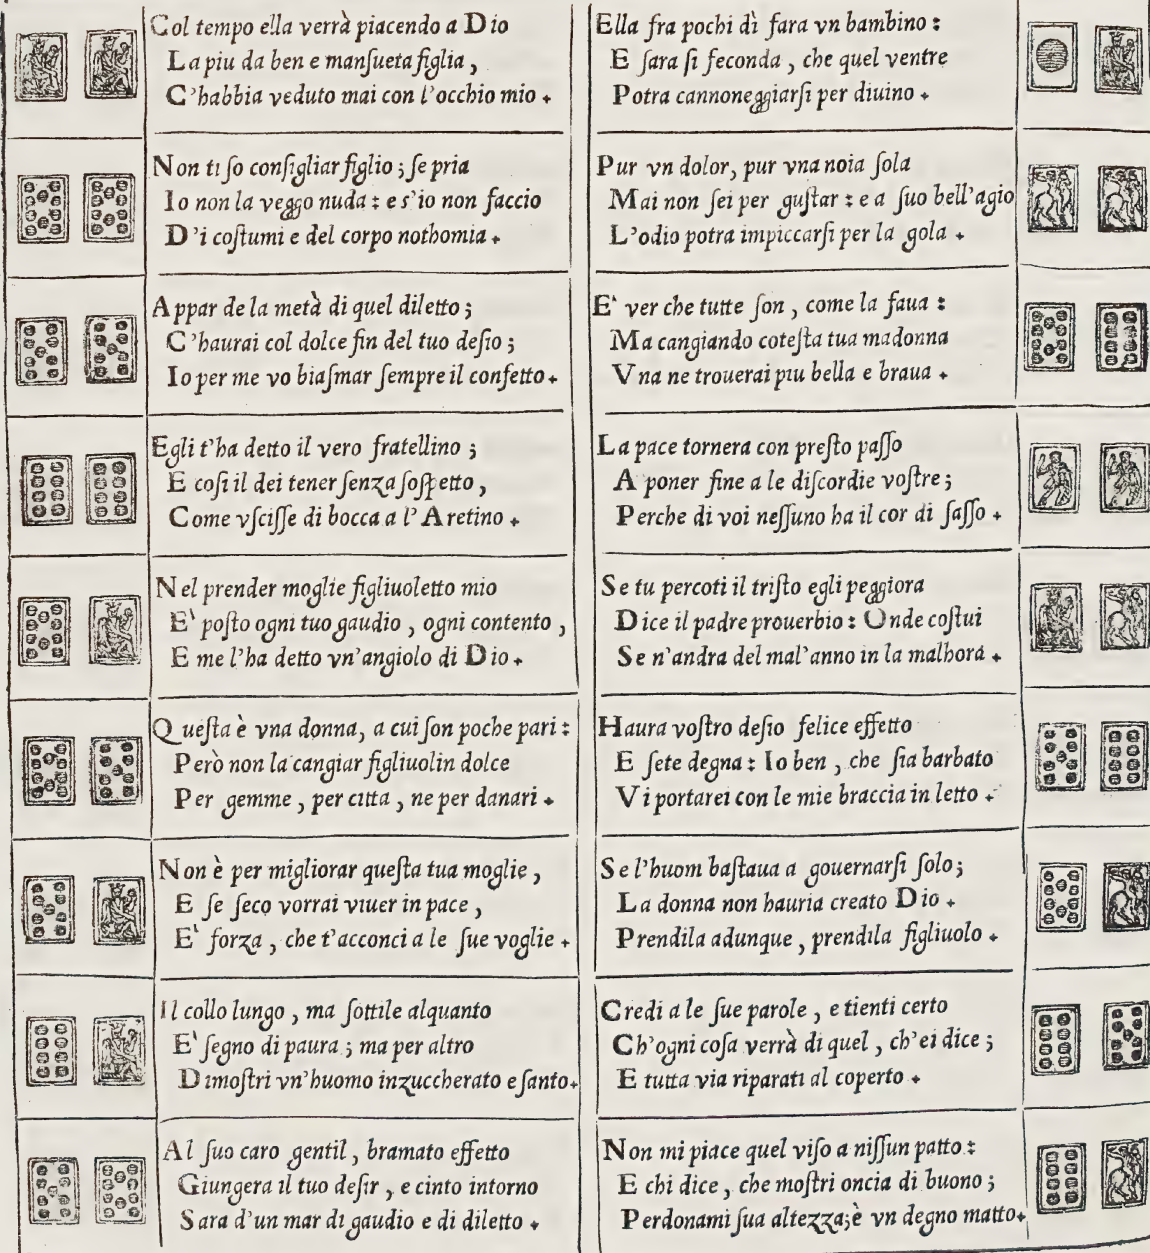 Col tempo ella verrà piacendo a Dio
La piu da ben e manſueta figlia ,
C'habbia veduto mai con l'occhio mio .
Non ti ſo conſigliar figlio ; ſe pria
Io non la veggo nuda : e s'io non faccio
D'i coſtumi e del corpo nothomia .
Appar de la metà di quel diletto ;
C'haurai col dolce fin del tuo deſio ;
Io per me vo biaſmar ſempre il confetto .
Egli t'ha detto il vero fratellino ;
E coſi il dei tener ſenza ſoſpetto ,
Come vſciſſe di bocca a l'Aretino .
Nel prender moglie figliuoletto mio
E' poſto ogni tuo gaudio , ogni contento ,
E me l'ha detto vn'angiolo di Dio .
Queſta è vna donna, a cui ſon poche pari :
Però non la cangiar figliuolin dolce
Per gemme , per citta , ne per danari .
Non è per migliorar queſta tua moglie ,
E ſe ſeco vorrai viuer in pace ,
E' forza , che t'acconci a le ſue voglie .
Il collo lungo , ma ſottile alquanto
E' ſegno di paura ; ma per altro
Dimoſtri vn'huomo inzuccherato e ſanto .
Al ſuo caro gentil , bramato effetto
Giungera il tuo deſir , e cinto intorno
Sara d'un mar di gaudio e di diletto .
Ella fra pochi dì fara vn bambino :
E ſara ſi feconda , che quel ventre
Potra cannoneggiarſi per diuino .
Pur vn dolor, pur vna noia ſola
Mai non ſei per guſtar : e a ſuo bell'agio
L'odio potra impiccarſi per la gola .
E' ver che tutte ſon , come la faua :
Ma cangiando coteſta tua madonna
Vna ne trouerai piu bella e braua .
La pace tornera con preſto paſſo
A poner fine a le diſcordie voſtre ;
Perche di voi neſſuno ha il cor di ſaſſo .
Se tu percoti il triſto egli peggiora
Dice il padre prouerbio : Onde coſtui
Se n'andra del mal'anno in la malhora .
Haura voſtro deſio felice effetto
E ſete degna : Io ben , che ſia barbato
Vi portarei con le mie braccia in letto .
Se l'huom baſtaua a gouernarſi ſolo ;
La donna non hauria creato Dio .
Prendila adunque , prendila figliuolo .
Credi a le ſue parole , e tienti certo
Ch'ogni coſa verrà di quel , ch'ei dice ;
E tutta via riparati al coperto .
Non mi piace quel viſo a niſſun patto :
E chi dice , che moſtri oncia di buono ;
Perdonami ſua altezza; è vn degno matto .